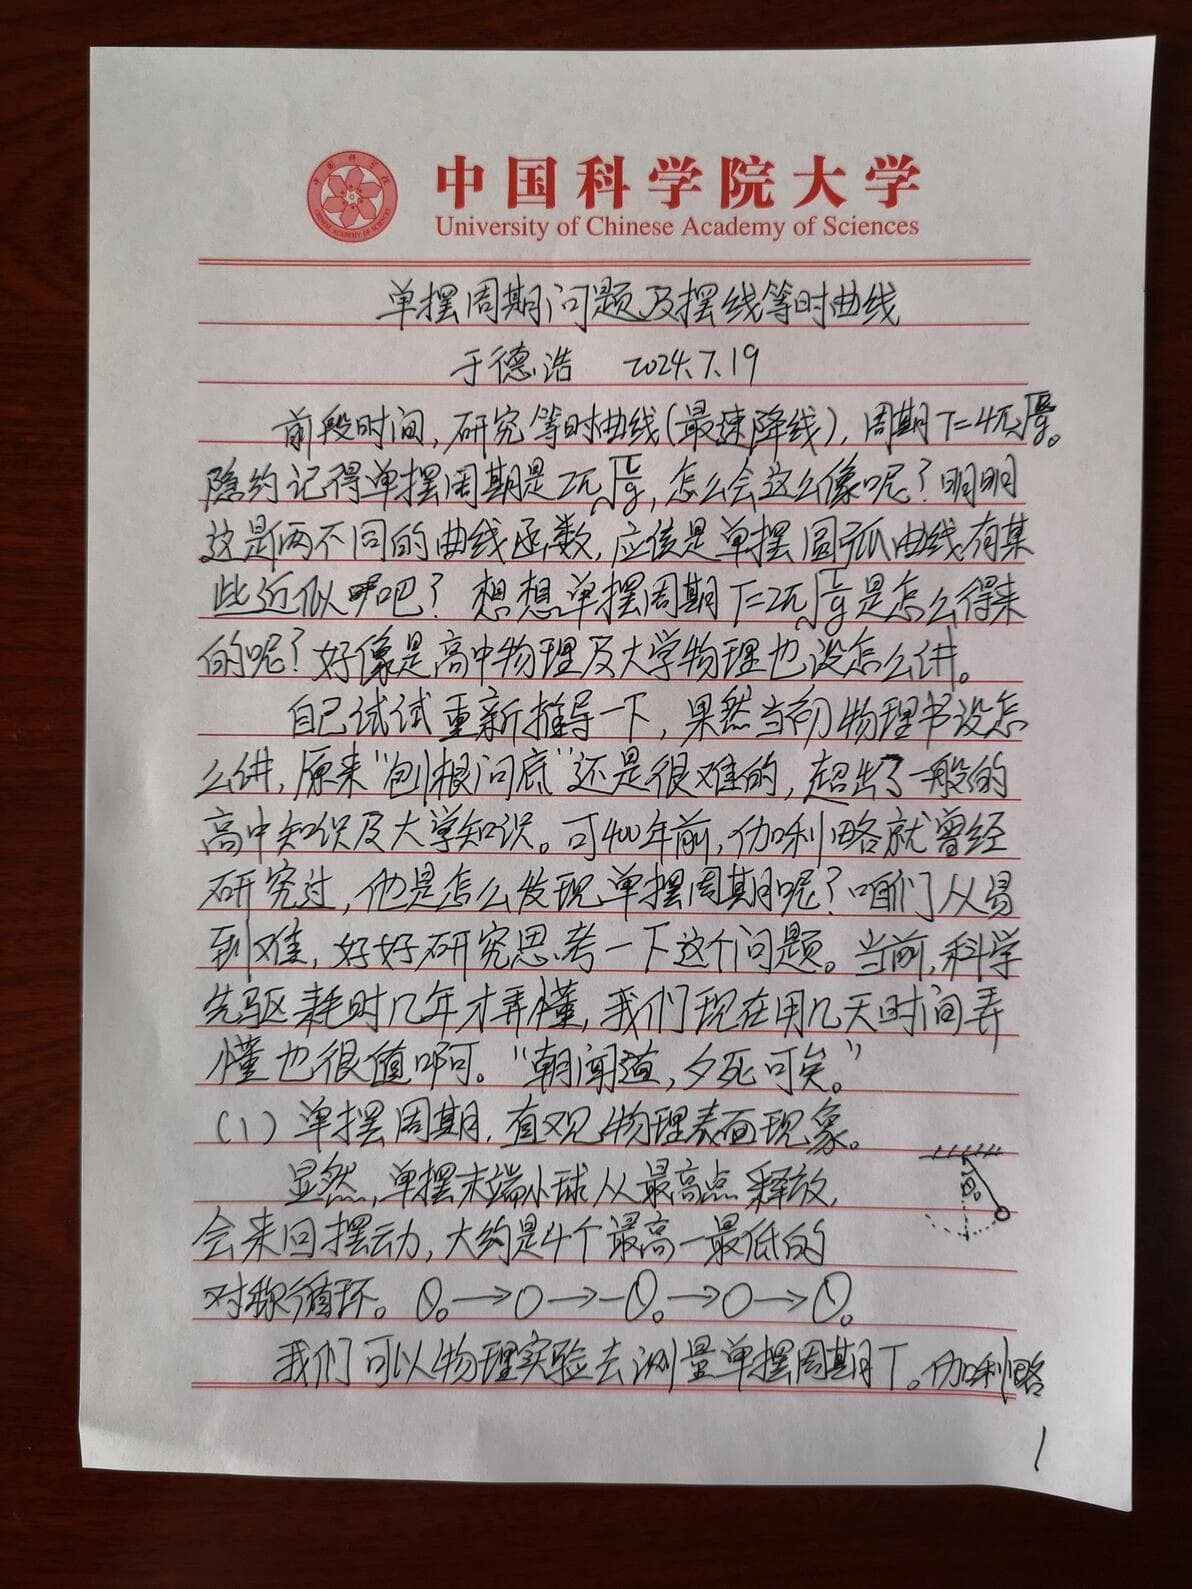 中国科学院大学
University of Chinese Academy of Sciences
单摆周期问题及摆线等时曲线
于德浩 2024.7.19
前段时间,研究等时曲线(最速降线),周期T=4π√(R/g)。
隐约记得单摆周期是2π√(L/g),怎么会这么像呢?明明
这是两不同的曲线函数,应该是单摆圆弧曲线有某
些近似吧?想想单摆周期T=2π√(L/g)是怎么得来
的呢?好像是高中物理及大学物理也没怎么讲。
自己试试重新推导一下,果然当初物理书没怎
么讲,原来“刨根问底”还是很难的,超出了一般的
高中知识及大学知识。可400年前,伽利略就曾经
研究过,他是怎么发现单摆周期呢?咱们从易
到难,好好研究思考一下这个问题。当前,科学
先驱耗时几年才弄懂,我们现在用几天时间弄
懂也很值啊。“朝闻道,夕死可矣。”
(1) 单摆周期,直观物理表面现象。
显然,单摆末端小球从最高点释放,
会来回摆动,大约是4个最高—最低的
对称循环。θ₀→0→-θ₀→0→θ₀
我们可以物理实验去测量单摆周期T。伽利略
1